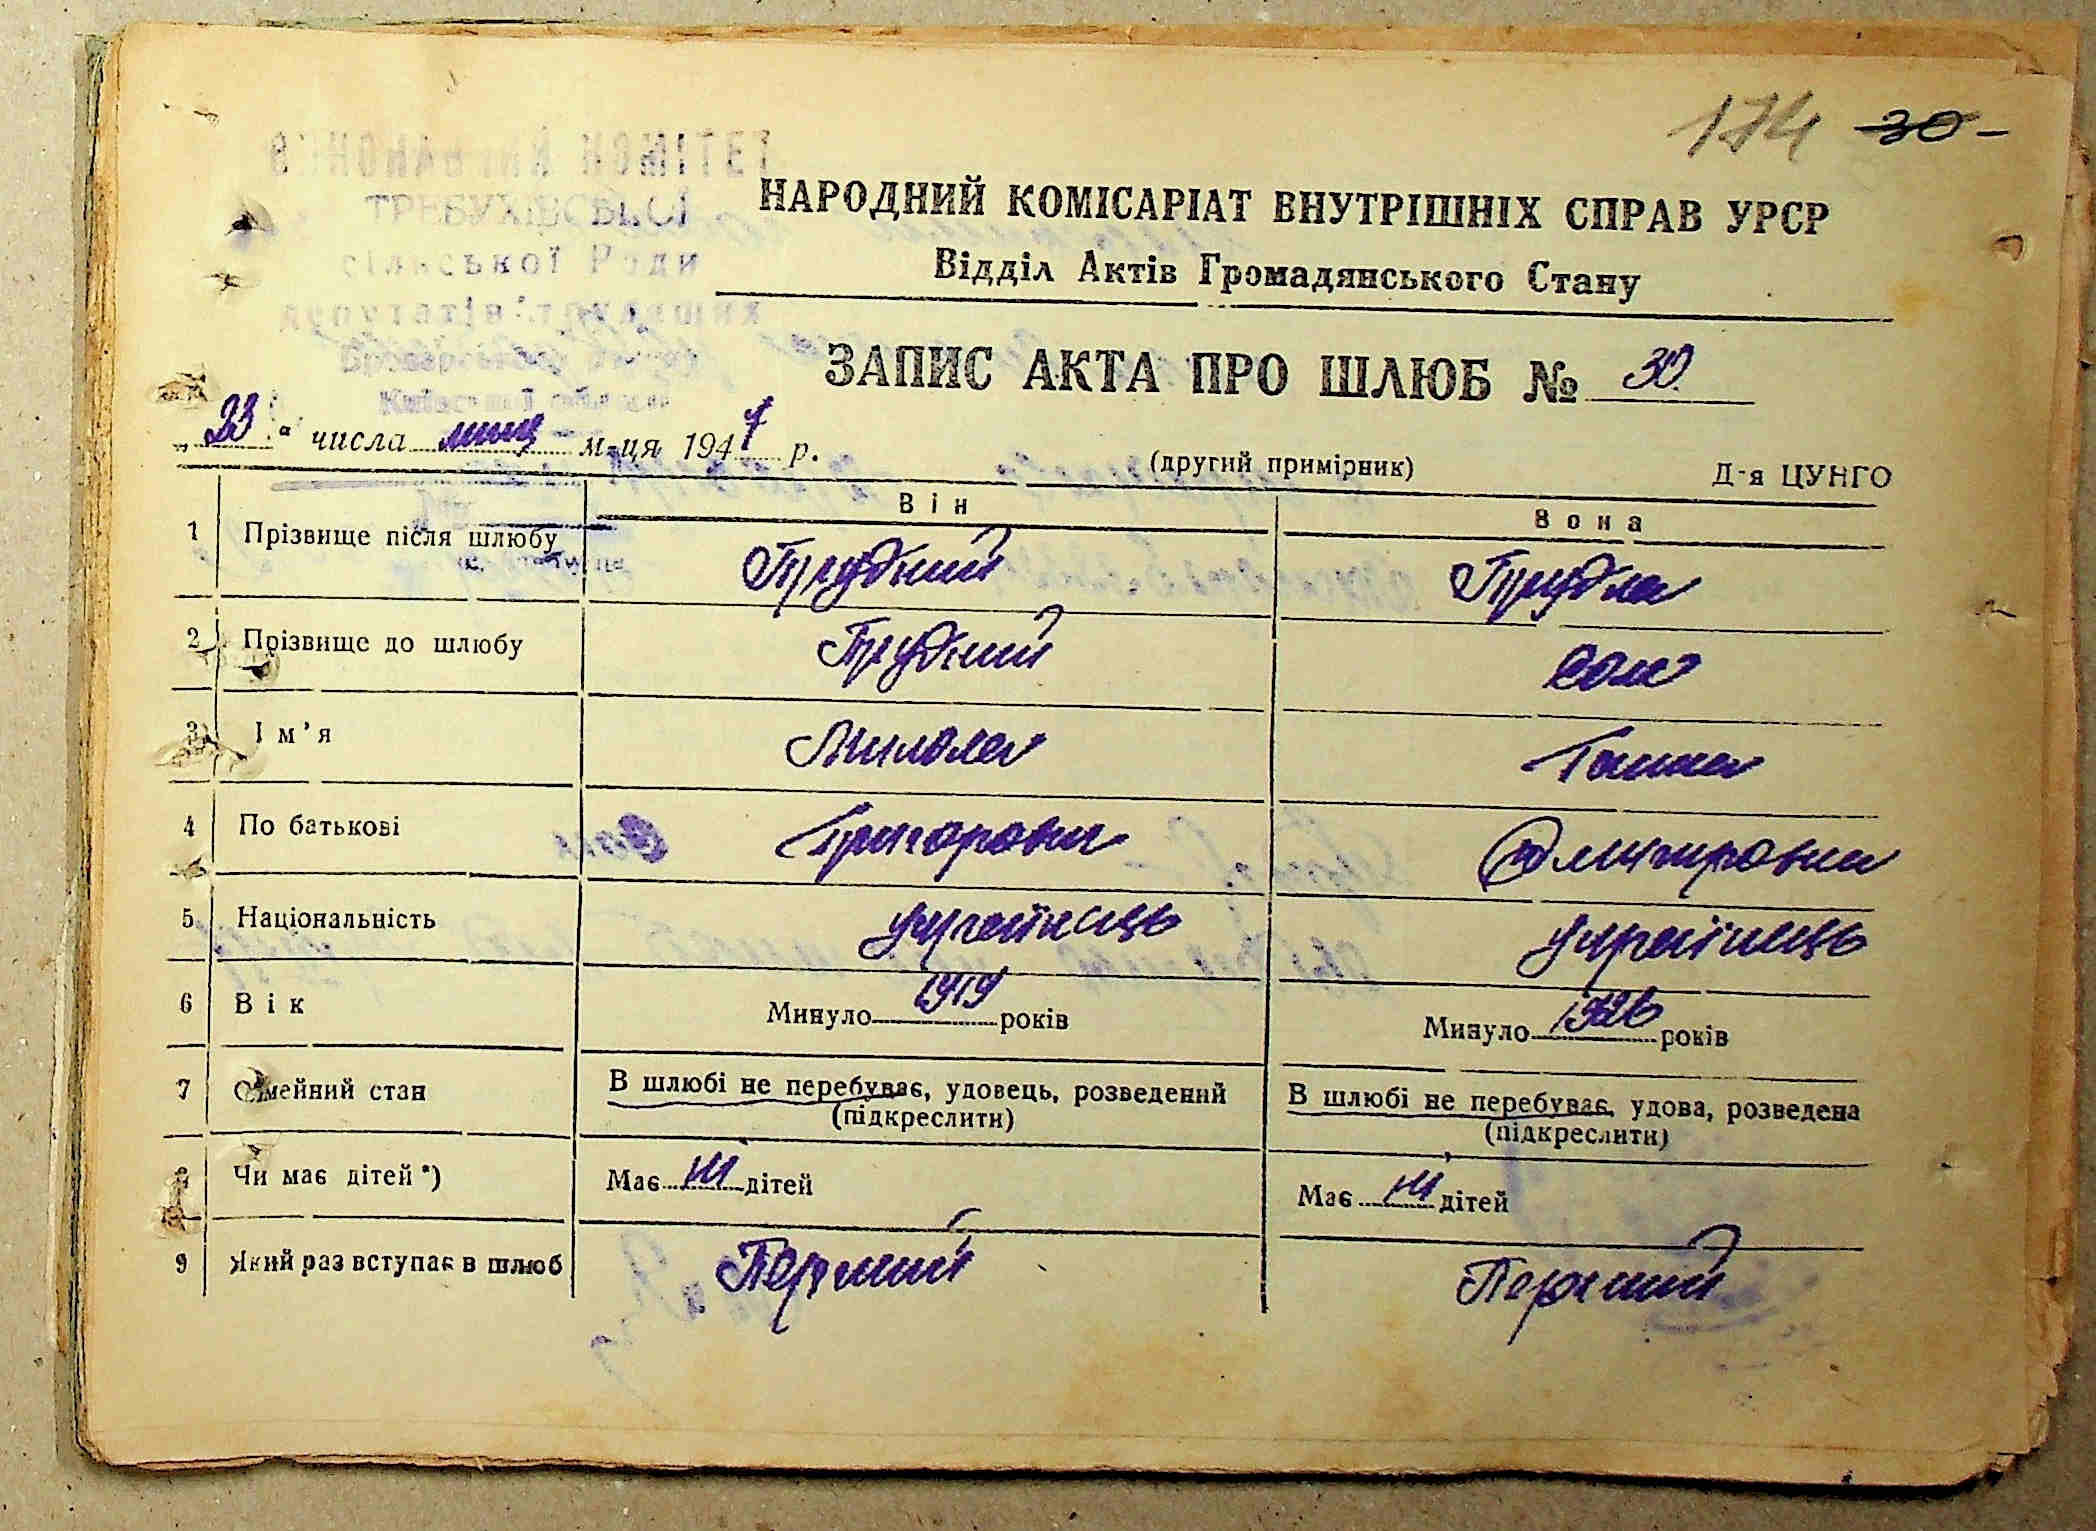 174 30 -
ТРЕБУХІВСЬКОЇ
сільської Ради
депутатів трудящих
НАРОДНИЙ КОМІСАРІАТ ВНУТРІШНІХ СПРАВ УРСР
Відділ Актів Громадянського Стану
ЗАПИС АКТА ПРО ШЛЮБ № 30
„23“ числа м-ця 1947 р.
(другий примірник) Д-я ЦУНГО
Він Вона
1 Прізвище після шлюбу Трубний Трубна
2 Прізвище до шлюбу Трубний
3 Ім'я Микола Ганна
4 По батькові Григорович Дмитровна
5 Національність українець українець
6 Вік Минуло 1919 років Минуло 1926 років
7 Сімейний стан В шлюбі не перебуває, удовець, розведений В шлюбі не перебуває, удова, розведена
(підкреслити) (підкреслити)
8 Чи має дітей*) Має дітей Має дітей
9 Який раз вступає в шлюб Перший Перший